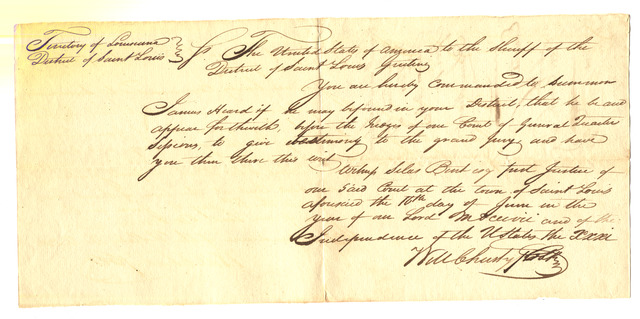 Territory of Louisiana
District of Saint Louis
The United States of America to the Sheriff of the
District of Saint Louis Greeting
You are hereby Commanded to summon
James Heard if he may be found in your District, that he be and
appear forthwith, before the Judges of our Court of General Quarter
Sessions, to give testimony to the grand Jury and have
you then there this writ
Witness Silas Bent esq first Justice of
our said Court at the town of Saint Louis
aforesaid the 10th day of June in the
year of our Lord and of the
Independence of the U States the XXXI
Will Christy